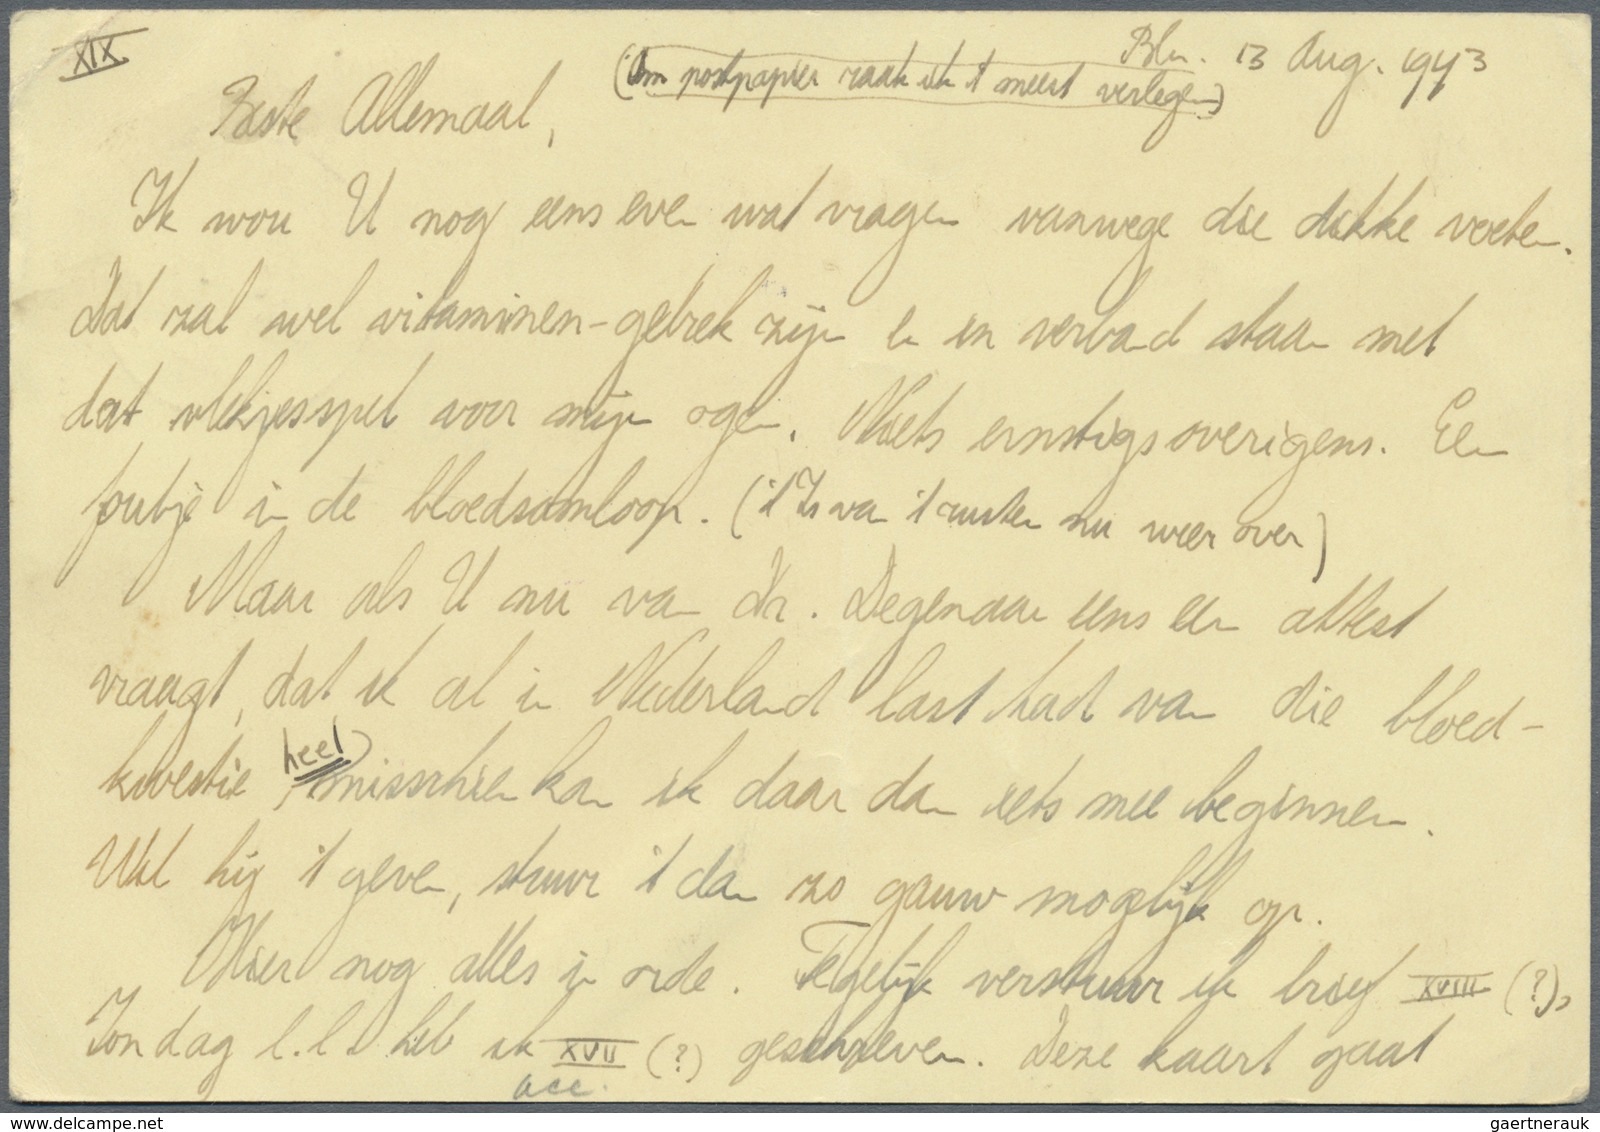 XIX
Bln. 13 Aug. 1943
(Om postpapier raak ik 't meest verlegen)
Beste Allemaal,
Ik wou U nog eens even wat vragen vanwege die dikke voeten.
Dat zal wel vitaminen-gebrek zijn en in verband staan met
dat vlekjesspel voor mijn ogen. Niets ernstigs overigens. Een
foutje in de bloedsomloop. ('t Is van 't rusten nu weer over)
Maar als U nu van Dr. Degenaar eens een attest
vraagt, dat ik al in Nederland last had van die bloed-
kwestie, heel misschien kan ik daar dan iets mee beginnen.
Wil hij 't geven, stuur 't dan zo gauw mogelijk op.
Hier nog alles in orde. Tegelijk verstuur ik brief XVIII (?),
Zondag l.l. heb ik XVII (?) geschreven. Deze kaart gaat
acc.
gaertnerauk